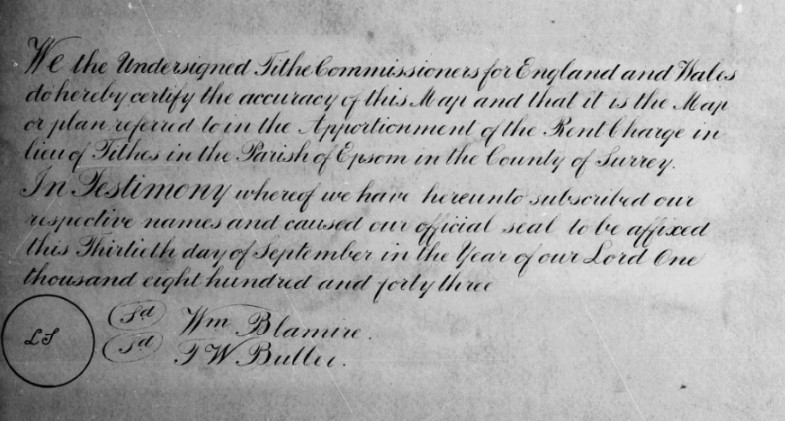 We the Undersigned Tithe Commissioners for England and Wales
do hereby certify the accuracy of this Map and that it is the Map
or plan referred to in the Apportionment of the Rent Charge in
lieu of Tithes in the Parish of Epsom in the County of Surrey.
In Testimony whereof we have hereunto subscribed our
respective names and caused our official seal to be affixed
this Thirtieth day of September in the Year of our Lord One
thousand eight hundred and forty three
Sd Wm Blamire.
LS
Sd T W Buller.